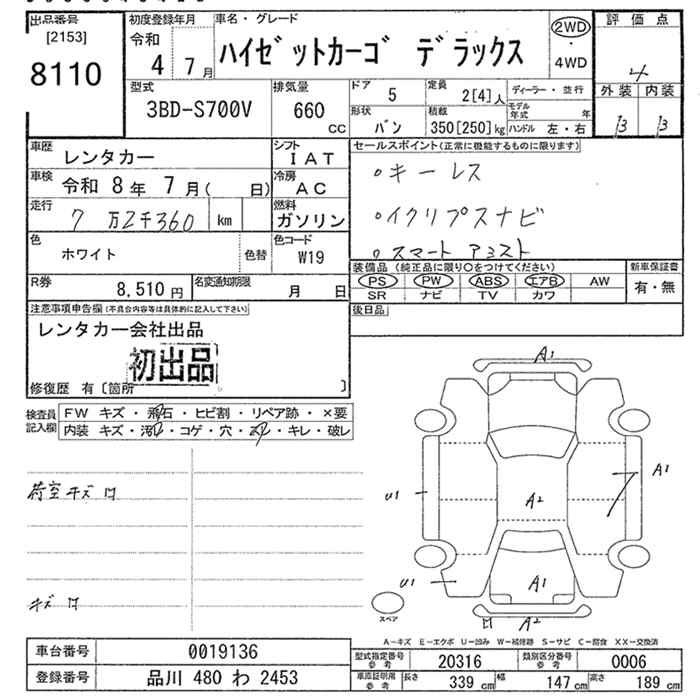 出品番号
[2153]
8110
初度登録年月
令和
4 7月
車名・グレード
ハイゼットカーゴ デラックス
2WD
・
4WD
評価点
4
外装 内装
B B
型式
3BD-S700V
排気量
660
CC
ドア
5
定員
2[4]人
形状
バン
積載
350[250]kg
ディーラー・並行
モデル年式 年
ハンドル 左・右
車歴
レンタカー
シフト
IAT
車検
令和 8年 7月( 日)
冷房
AC
走行
7万2千360 km
燃料
ガソリン
色
ホワイト
色替
色コード
W19
R券
8,510円
名変通知期限
月 日
セールスポイント(正常に機能するものに限ります)
○キーレス
○イクリプスナビ
○スマートアシスト
装備品(純正品に限り○をつけてください)
PS PW ABS エアB AW
SR ナビ TV カワ
新車保証書
有・無
後日品
注意事項申告欄(不具合内容等は具体的に記入して下さい)
レンタカー会社出品
初出品
修復歴 有〔箇所 〕
検査員記入欄
FW キズ・飛石・ヒビ割・リペア跡・×要
内装 キズ・汚れ・コゲ・穴・スレ・キレ・破レ
荷室キズ
キズ
A1
U1
A2
A1
U1
A1
A2
スペア
A-キズ E-エクボ U-凹み W-補修跡 S-サビ C-腐食 XX-交換済
車台番号
0019136
登録番号
品川 480 わ 2453
型式指定番号
参考
20316
類別区分番号
参考
0006
車原証明用
参考
長さ
339cm
幅
147cm
高さ
189cm